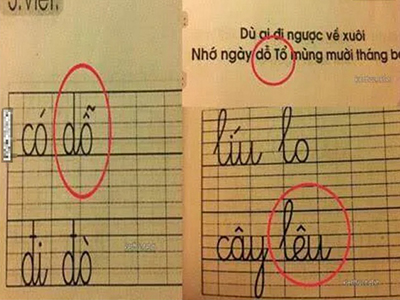 3.Viết.
có dỗ
đi đò
Dù ai đi ngược về xuôi
Nhớ ngày dỗ Tổ mùng mười tháng
líu lo
cây lêu